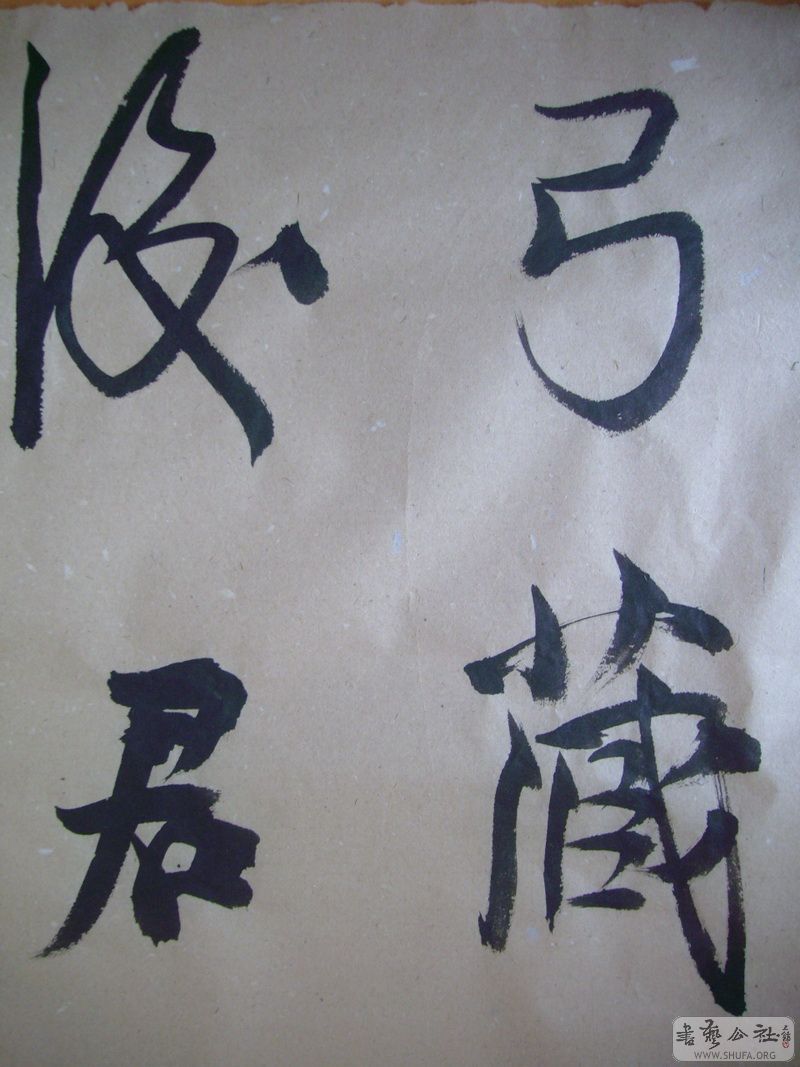 弓藏
君
書藝公社
WWW.SHUFA.ORG